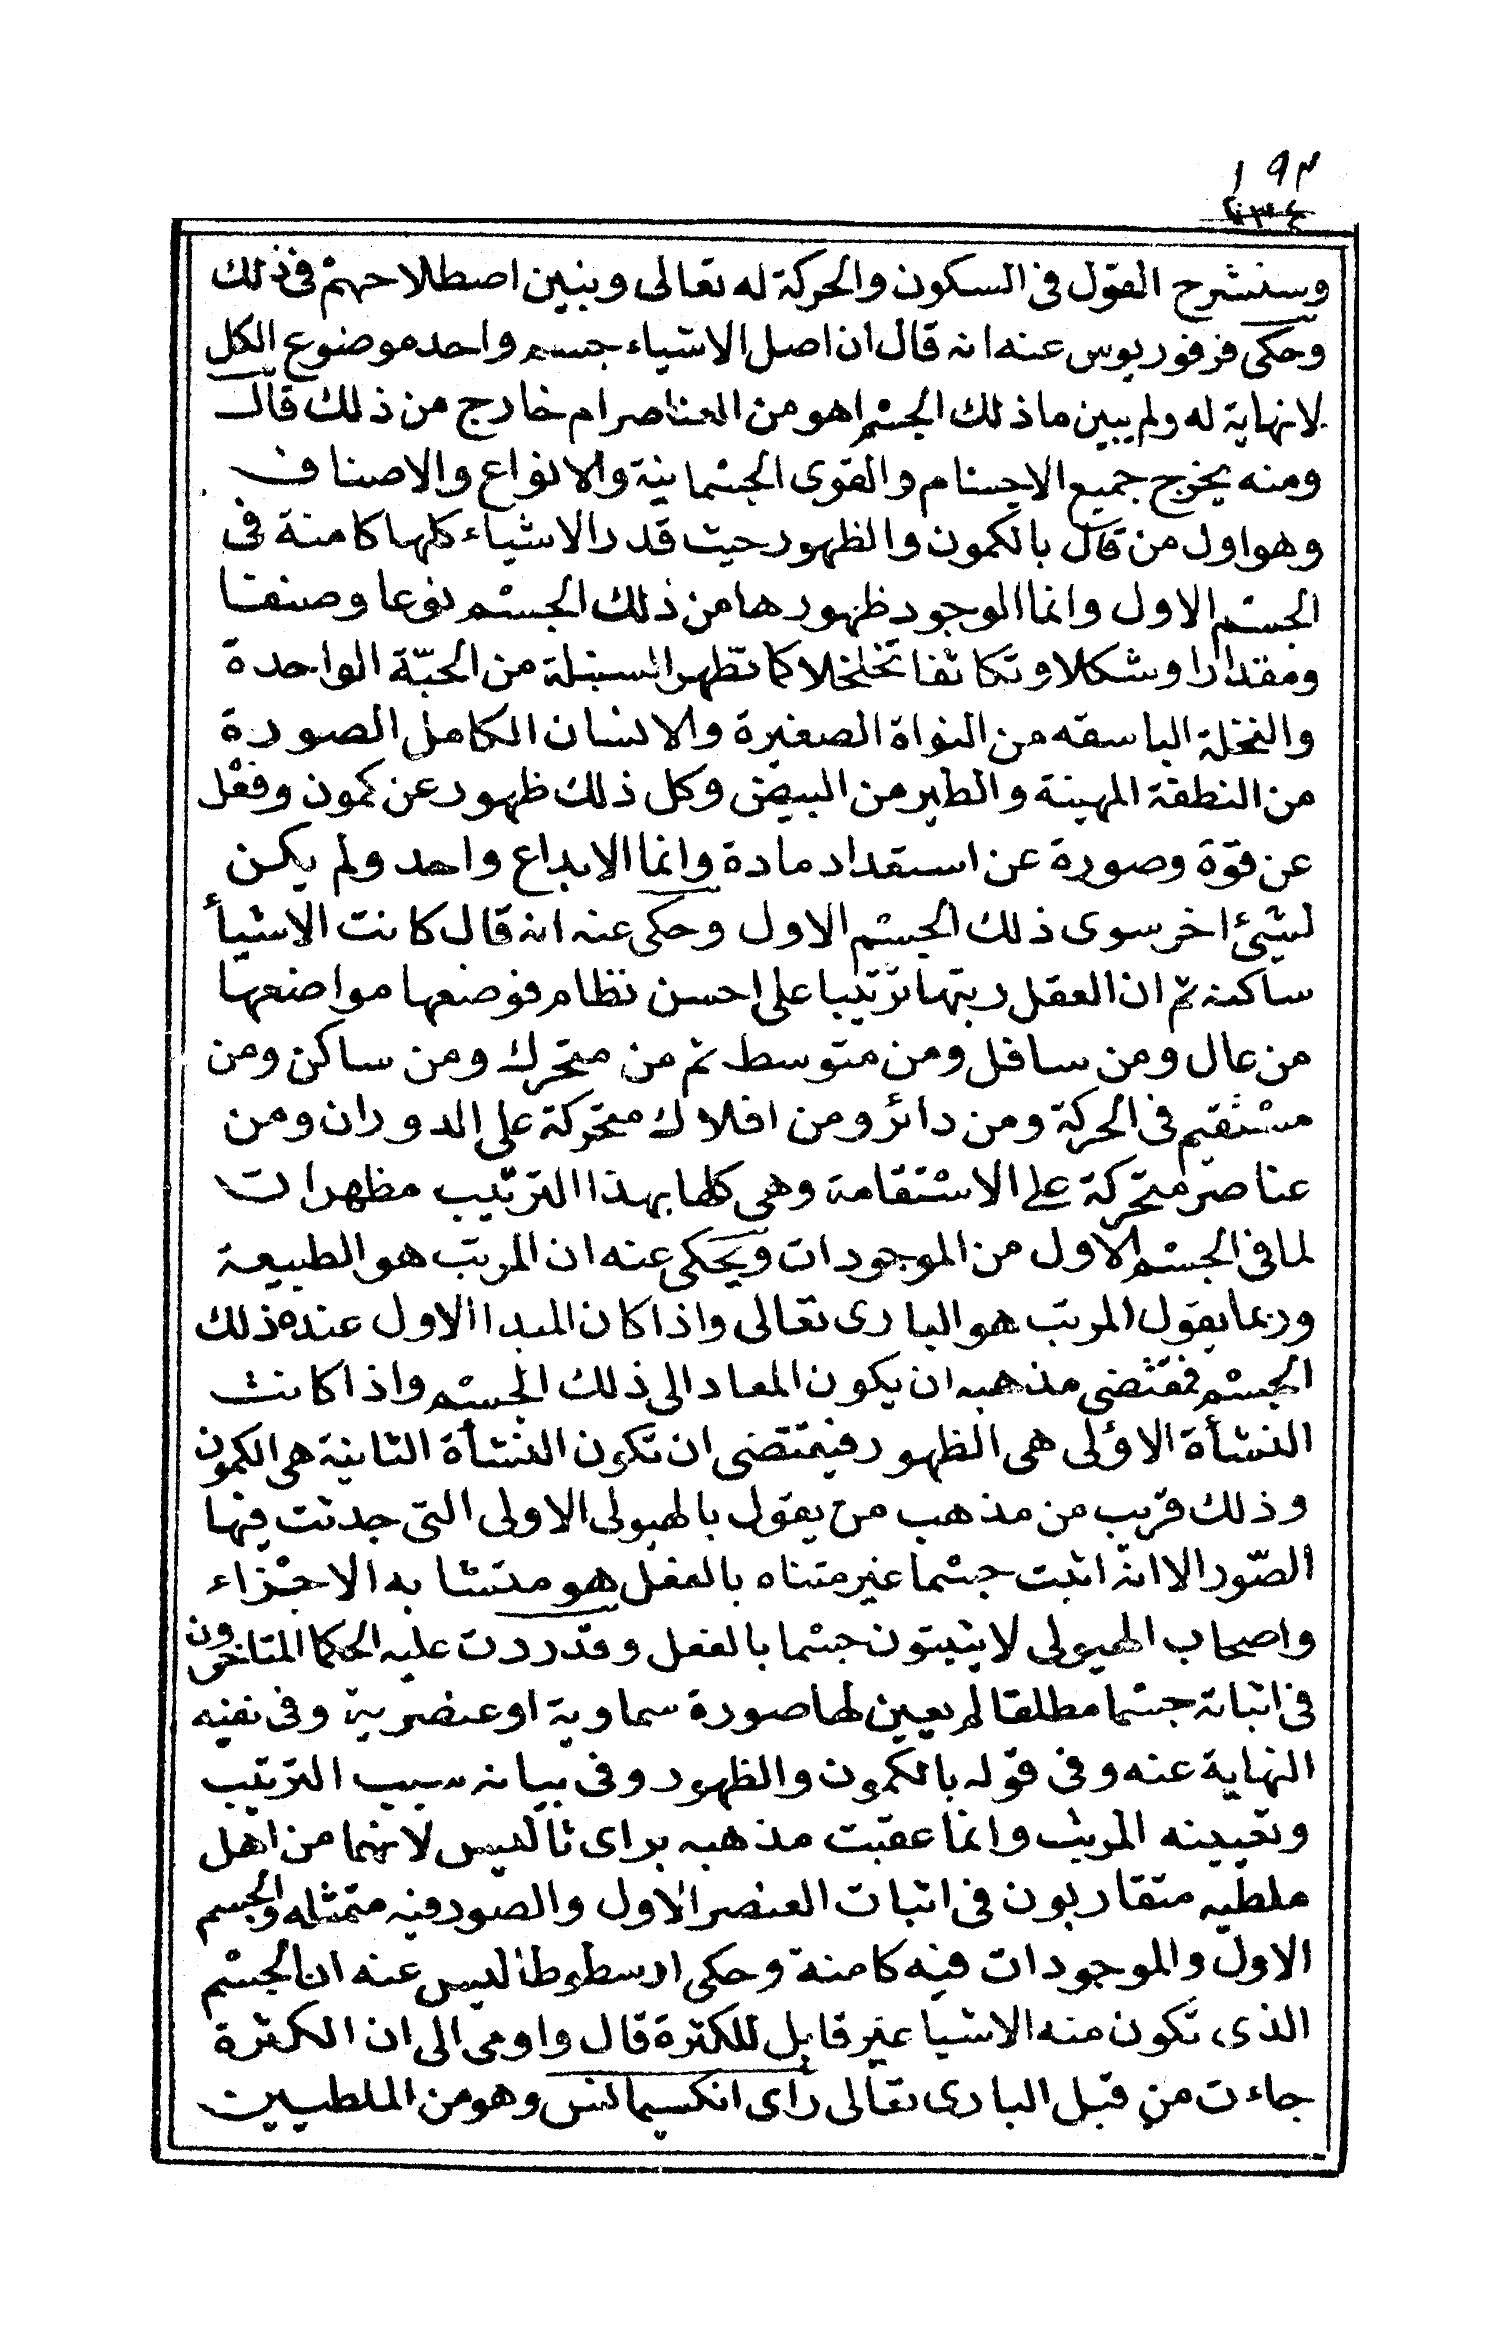 ١٩٣
وسنشرح القول فى السكون والحركة له تعالى ونبين اصطلاحهم فى ذلك
وحكى فرفوريوس عنه انه قال ان اصل الاشياء جسم واحد موضوع الكل
لا نهاية له ولم يبين ما ذلك الجسم اهو من العناصر ام خارج من ذلك قال
ومنه يخرج جميع الاجسام والقوى الجسمانية والانواع والاصناف
وهو اول من قال بالكمون والظهور حيث قدر الاشياء كلها كامنة فى
الجسم الاول وانما الوجود ظهورها من ذلك الجسم نوعا وصنفا
ومقدارا وشكلا وتكاثفا تخلخلا كما تظهر السنبلة من الحبّة الواحدة
والنخلة الباسقه من النواة الصغيرة والانسان الكامل الصورة
من النطفة المهينة والطير من البيض وكل ذلك ظهور عن كمون وفعل
عن قوّة وصورة عن استعداد مادة وانما الابداع واحد ولم يكن
لشئ اخر سوى ذلك الجسم الاول وحكى عنه انه قال كانت الاشيأ
ساكنه ثم ان العقل رتبها ترتيبا على احسن نظام فوضعها مواضعها
من عال ومن سافل ومن متوسط ثم من متحرك ومن ساكن ومن
مستقيم فى الحركة ومن دائر ومن افلاك متحركة على الدوران ومن
عناصر متحركة على الاستقامة وهى كلها بهذا الترتيب مظهرات
لما فى الجسم الاول من الموجودات ويحكى عنه ان المرتب هو الطبيعة
وربما يقول المرتب هو البارى تعالى واذا كان المبدا الاول عنده ذلك
الجسم فمقتضى مذهبه ان يكون المعاد الى ذلك الجسم واذا كانت
النشأة الاولى هى الظهور فيقتضى ان تكون النشأة الثانية هى الكمون
وذلك قريب من مذهب من يقول بالهيولى الاولى التى حدثت فيها
الصّور الا انه اثبت جسما غير متناه بالفعل هو متشابه الاجزاء
واصحاب الهيولى لا يثبتون جسما بالفعل وقد ردت عليه الحكما المتاخرون
فى اثباته جسما مطلقا لم يعين لها صورة سماوية او عنصرية وفى نفيه
النهاية عنه وفى قوله بالكمون والظهور وفى بيانه سبب الترتيب
وتعيينه المرتب وانما عقبت مذهبه براى ثاليس لانهما من اهل
ملطيه متقاربون فى اثبات العنصر الاول والصور فيه متمثله والجسم
الاول والموجودات فيه كامنة وحكى ارسطوطاليس عنه ان الجسم
الذى تكون منه الاشيا غير قابل للكثرة قال واومى الى ان الكثرة
جاءت من قبل البارى تعالى رأى انكسيمانس وهو من الملطيين